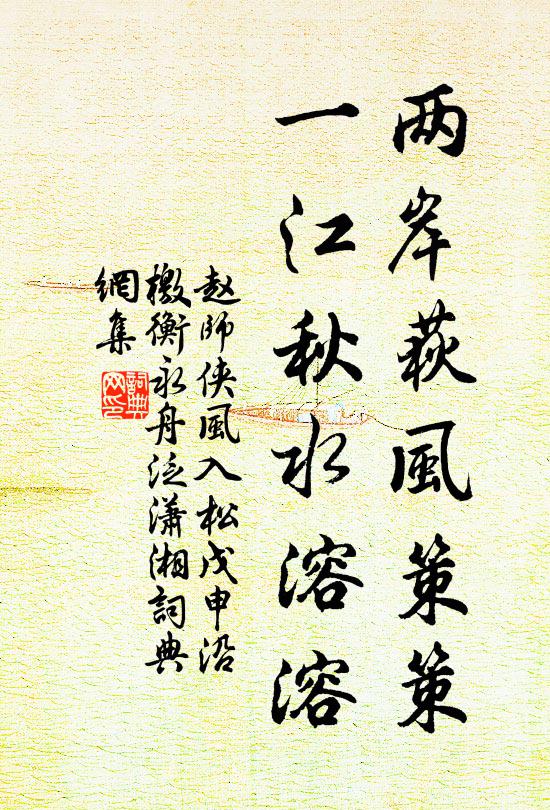 两岸荻風策策
一江秋水溶溶
赵师侠風入松戊申沿
檄衡永舟泛瀟湘詞典
網集
詞典
网印